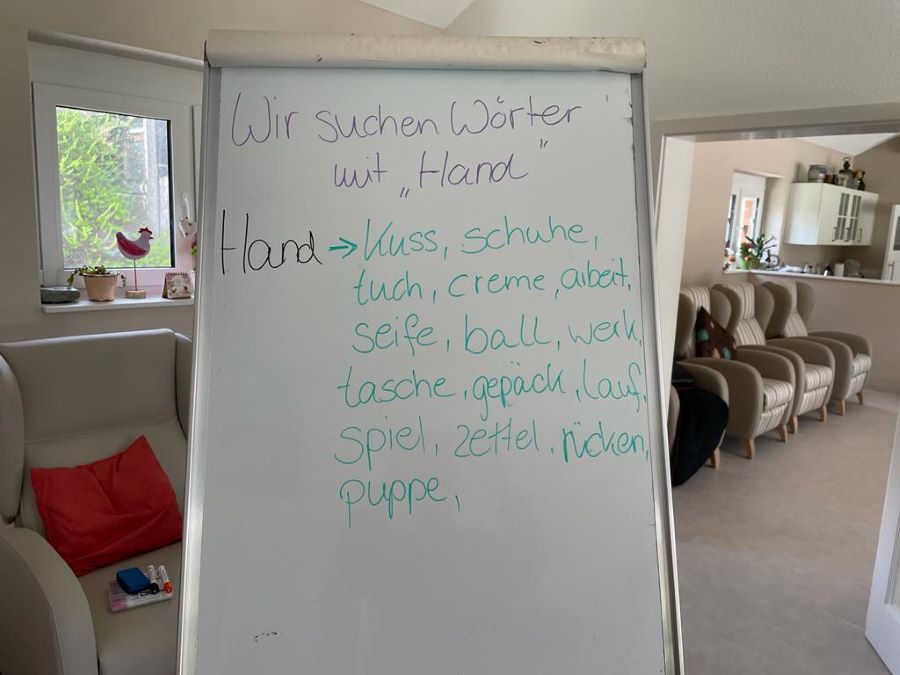 Wir suchen Wörter
mit „Hand"
Hand → Kuss, schuhe,
tuch, creme, arbeit,
seife, ball, werk,
tasche, gepäck, lauf,
spiel, zettel, rücken,
puppe,